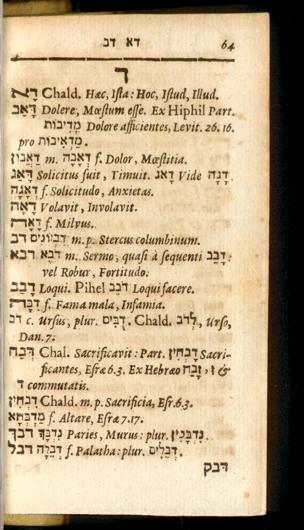 דא דב 64
ד
דָּא Chald. Hæc, Iſta: Hoc, Iſtud, Illud.
דָּאַב Dolere, Mœſtum eſſe. Ex Hiphil Part.
מְדִיבוֹת Dolore afficientes, Levit. 26. 16.
pro מַדְאִיבוֹת.
דְּאָבוֹן m. דְּאָבָה f. Dolor, Mœſtitia.
דָּאַג Solicitus fuit, Timuit. דאג Vide דָּגָה.
דְּאָגָה f. Solicitudo, Anxietas.
דָּאָה Volavit, Involavit.
דָּאָה f. Milvus.
דב דִּבְיוֹנִים m. p. Stercus columbinum.
דבא דֹּבֶא m. Sermo, quaſi à ſequenti דָּבַב:
vel Robur, Fortitudo.
דָּבַב Loqui. Pihel דֹּבֵב Loqui facere.
דִּבָּה f. Fama mala, Infamia.
דֹּב c. Urſus, plur. דֻּבִּים. Chald. לְדֹב, Urſo,
Dan. 7.
דְּבַח Chal. Sacrificavit: Part. דָּבְחִין Sacri-
ficantes, Eſræ 6. 3. Ex Hebræo זָבַח, ז &
ד commutatis.
דִּבְחִין Chald. m. p. Sacrificia, Eſr. 6. 3.
מַדְבְּחָא f. Altare, Eſræ 7. 17.
דבך נִדְבָּךְ Paries, Murus: plur. נִדְבָּכִין.
דבל דְּבֵלָה f. Palatha: plur. דְּבֵלִים.
דבק